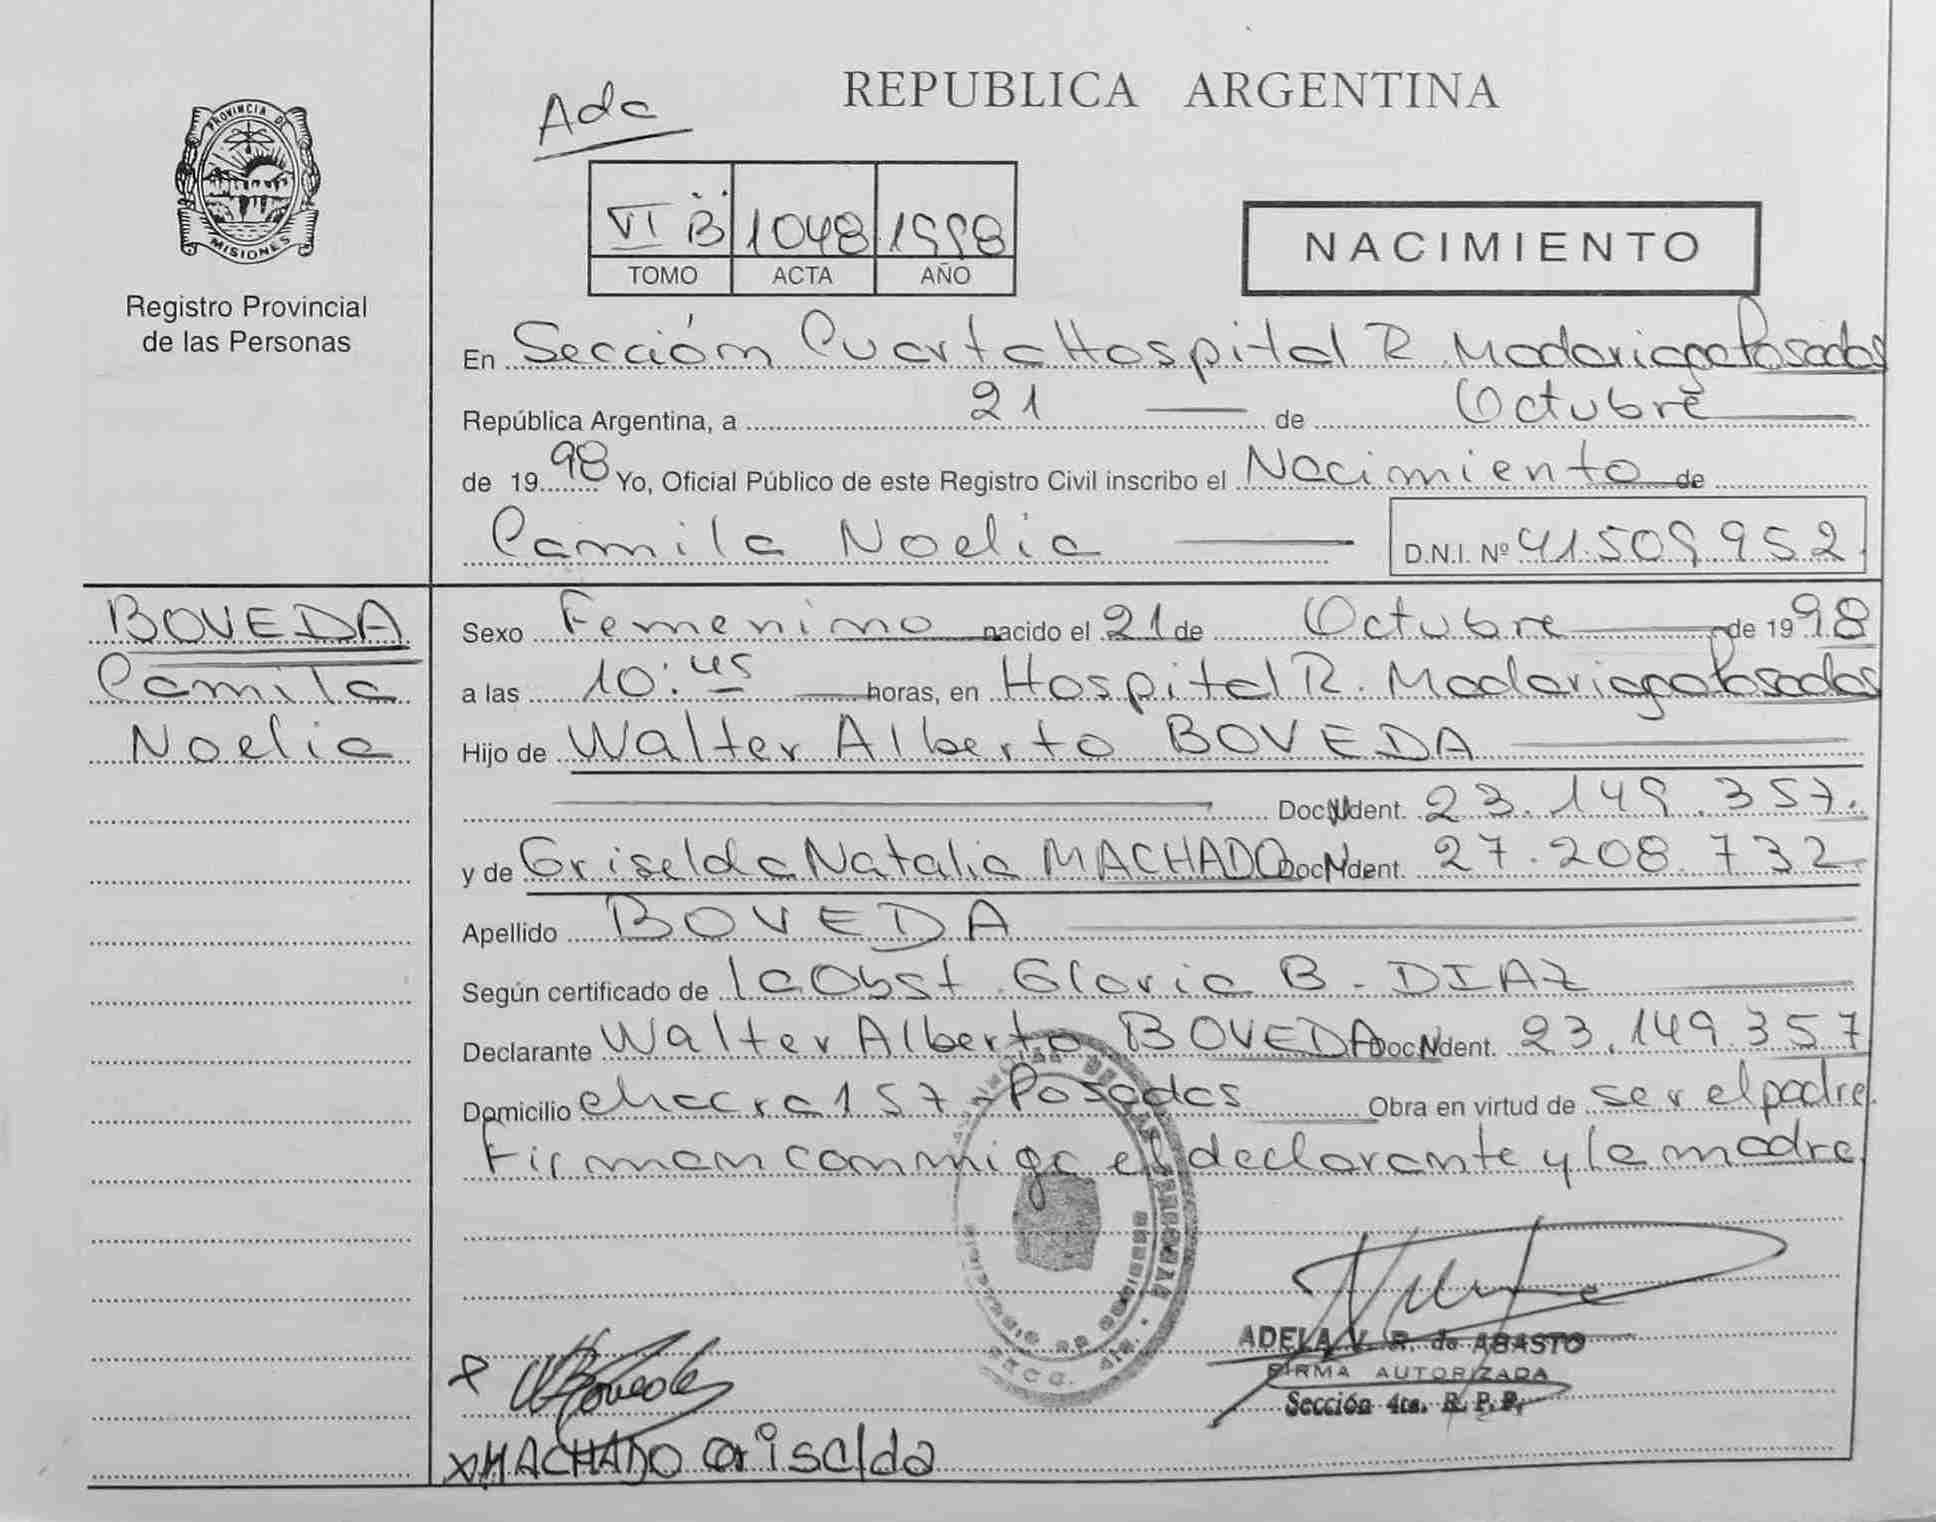 PROVINCIA DE
MISIONES
Registro Provincial
de las Personas
Ada
REPUBLICA ARGENTINA
VI B 1048 1998
TOMO ACTA AÑO
NACIMIENTO
En Sección Cuarta Hospital R. Madariaga Posadas
República Argentina, a 21 de Octubre
de 1998 Yo, Oficial Público de este Registro Civil inscribo el Nacimiento de
Camila Noelia D.N.I. Nº 41.509.952
BOVEDA
Camila
Noelia
Sexo Femenino nacido el 21 de Octubre de 1998
a las 10:45 horas, en Hospital R. Madariaga Posadas
Hijo de Walter Alberto BOVEDA
Doc N Ident. 23.149.357.
y de Griselda Natalia MACHADO Doc N Ident. 27.208.732
Apellido BOVEDA
Según certificado de la Obst. Gloria B. DIAZ
Declarante Walter Alberto BOVEDA Doc N Ident. 23.149.357
Domicilio chacra 157 - Posadas Obra en virtud de ser el padre.
Firman conmigo el declarante y la madre
ADELA V. R. de ABASTO
FIRMA AUTORIZADA
Sección 4ta. R. P. P.
WBoveda
x MACHADO Griselda